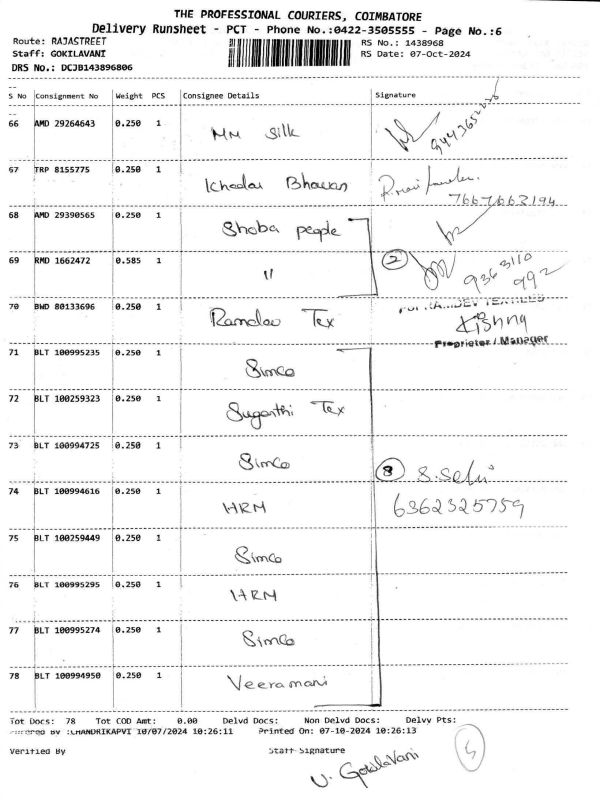 THE PROFESSIONAL COURIERS, COIMBATORE
Delivery Runsheet - PCT - Phone No.:0422-3505555 - Page No.:6
Route: RAJASTREET RS No.: 1438968
Staff: GOKILAVANI RS Date: 07-Oct-2024
DRS No.: DCJB143896806
S No Consignment No Weight PCS Consignee Details Signature
66 AMD 29264643 0.250 1 MM Silk
67 TRP 8155775 0.250 1 Khadai Bhavan
7667663194
68 AMD 29390565 0.250 1 Shoba people
69 RMD 1662472 0.585 1 11 2 9363110
992
70 BWD 80133696 0.250 1 Ramdev Tex
Krishna
Proprietor / Manager
71 BLT 100995235 0.250 1 Simco
72 BLT 100259323 0.250 1 Suganthi Tex
73 BLT 100994725 0.250 1 Simco 8 S. Selvi
74 BLT 100994616 0.250 1 HRM 6362325759
75 BLT 100259449 0.250 1 Simco
76 BLT 100995295 0.250 1 HRM
77 BLT 100995274 0.250 1 Simco
78 BLT 100994950 0.250 1 Veeramani
Tot Docs: 78 Tot COD Amt: 0.00 Delvd Docs: Non Delvd Docs: Delvy Pts:
:CHANDRIKAPVI 10/07/2024 10:26:11 Printed On: 07-10-2024 10:26:13
Verified By Staff Signature
V. GokilaVani